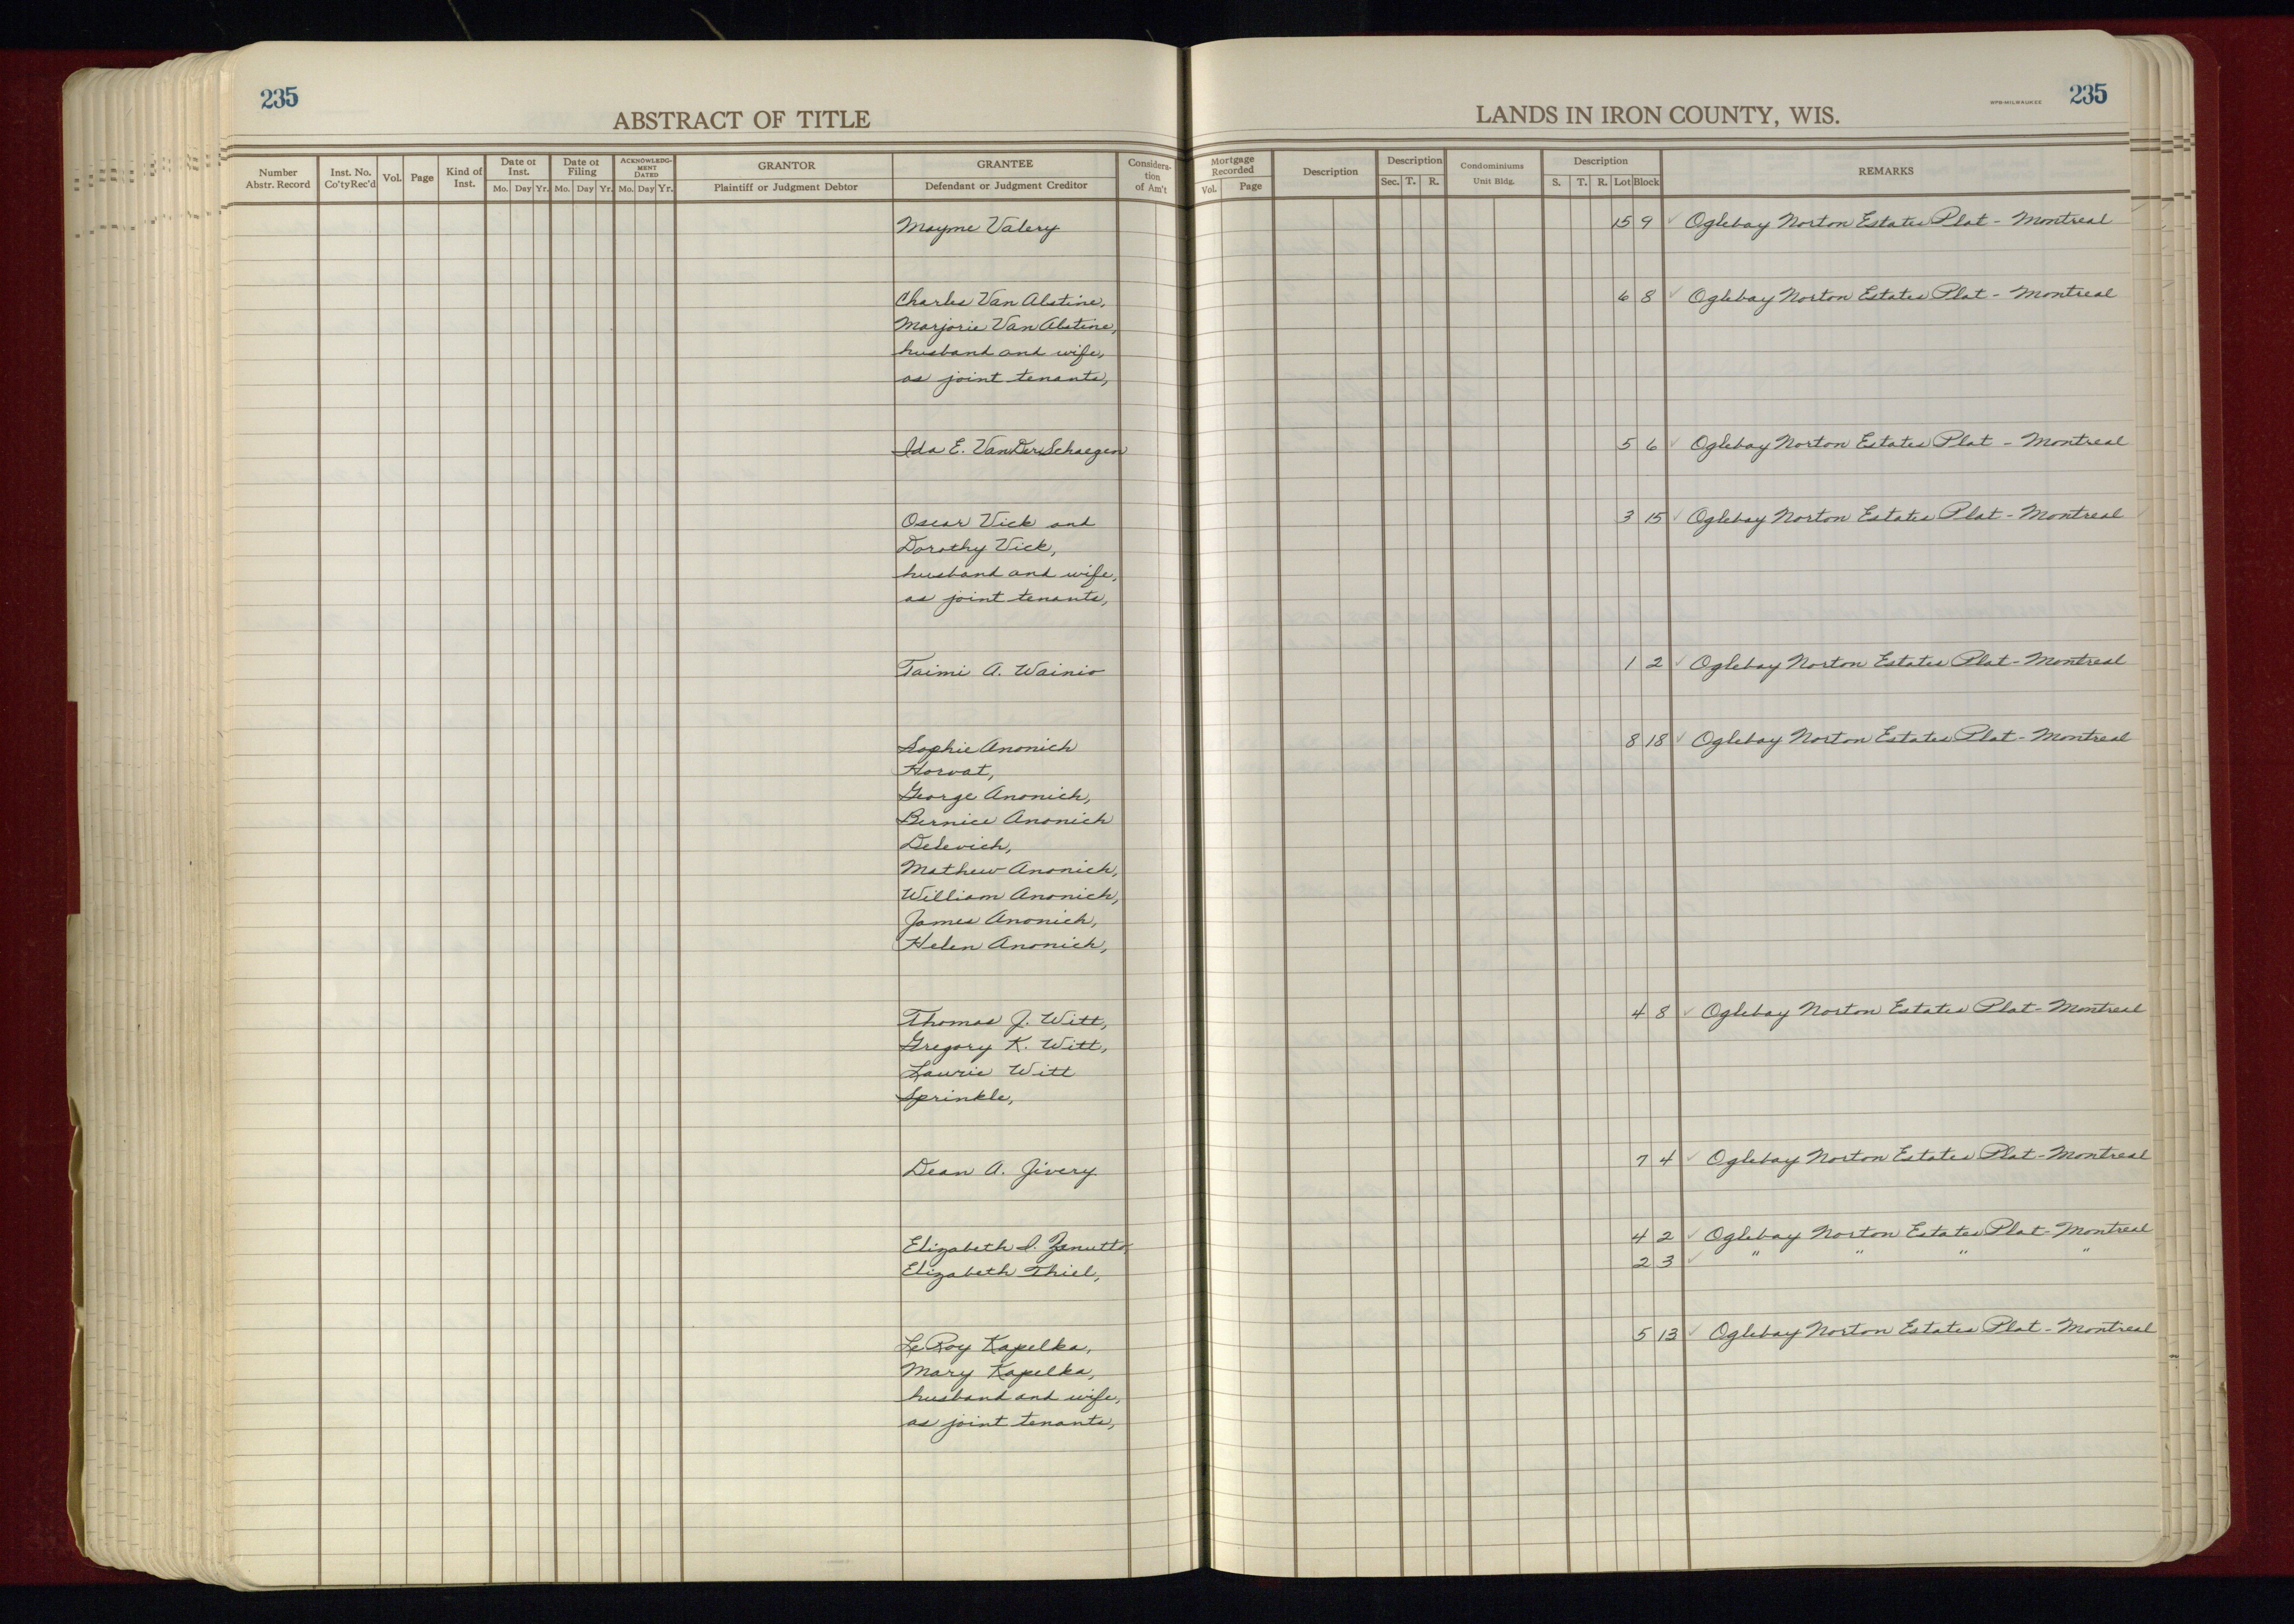 235
ABSTRACT OF TITLE
Number Abstr. Record
Inst. No. Co'ty Rec'd
Vol.
Page
Kind of Inst.
Date of Inst.
Mo. Day Yr.
Date of Filing
Mo. Day Yr.
ACKNOWLEDGMENT DATED
Mo. Day Yr.
GRANTOR
Plaintiff or Judgment Debtor
GRANTEE
Defendant or Judgment Creditor
Consideration of Am't
Mayme Valery
Charles Van Alstine,
Marjorie Van Alstine,
husband and wife,
as joint tenants,
Ida E. VanDerSchaegen
Oscar Vick and
Dorothy Vick,
husband and wife,
as joint tenants,
Taimi A. Wainio
Sophie Anonich
Horvat,
George Anonich,
Bernice Anonich
Delevich,
Mathew Anonich,
William Anonich,
James Anonich,
Helen Anonich,
Thomas J. Witt,
Gregory K. Witt,
Laurie Witt
Sprinkle,
Dean A. Jivery
Elizabeth I. Zanutto,
Elizabeth Thiel,
LeRoy Kapelka,
Mary Kapelka,
husband and wife,
as joint tenants,
LANDS IN IRON COUNTY, WIS.
HPB-MILWAUKEE
235
Mortgage Recorded
Vol. Page
Description
Description
Sec. T. R.
Condominiums
Unit Bldg.
Description
S. T. R. Lot Block
REMARKS
15 9 ✓ Oglebay Norton Estates Plat - Montreal
6 8 ✓ Oglebay Norton Estates Plat - Montreal
5 6 ✓ Oglebay Norton Estates Plat - Montreal
3 15 ✓ Oglebay Norton Estates Plat - Montreal
1 2 ✓ Oglebay Norton Estates Plat - Montreal
8 18 ✓ Oglebay Norton Estates Plat - Montreal
4 8 ✓ Oglebay Norton Estates Plat - Montreal
7 4 ✓ Oglebay Norton Estates Plat - Montreal
4 2 ✓ Oglebay Norton Estates Plat - Montreal
2 3 ✓ " " " "
5 13 ✓ Oglebay Norton Estates Plat - Montreal